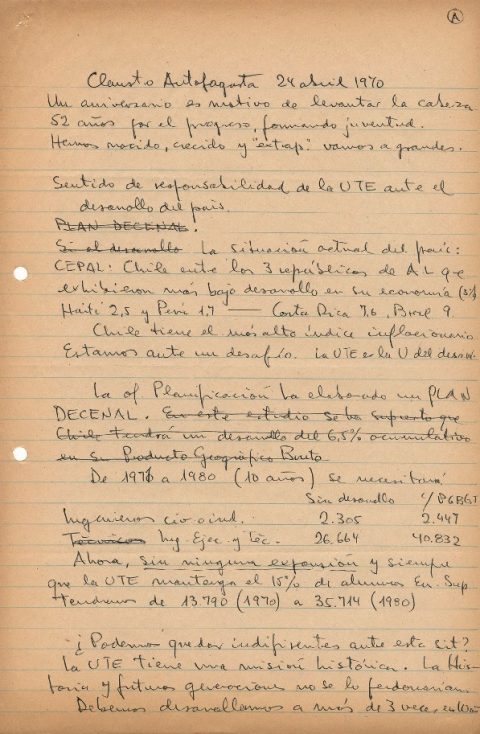 A
Claustro Antofagasta 24 abril 1970
Un aniversario es motivo de levantar la cabeza
52 años por el progreso, formando juventud.
Hemos nacido, crecido y "extrap." vamos a grandes.
Sentido de responsabilidad de la UTE ante el
desarrollo del país.
PLAN DECENAL.
Si al desarrollo La situación actual del país:
CEPAL: Chile entre los 3 repúblicas de AL que
exhibieron más bajo desarrollo en su economía (3%)
Haití 2,5 y Perú 1,7 — Costa Rica 7,6, Brasil 9
Chile tiene el más alto índice inflacionario
Estamos ante un desafío. La UTE es la U del desarr.
La of. Planificación ha elaborado un PLAN
DECENAL. En este estudio se ha supuesto que
Chile tendrá un desarrollo del 6,5% acumulativo
en su Producto Geográfico Bruto
De 1971 a 1980 (10 años) se necesitará
Sin desarrollo c/PGBGT
Ingenieros civ o ind. 2.305 2.447
Técnicos Ing. Ejec. y Téc. 26.664 40.832
Ahora, sin ninguna expansión y siempre
que la UTE mantenga el 15% de alumnos En. Sup
tendramos de 13.790 (1970) a 35.714 (1980)
¿Podemos quedar indifirentes ante esta sit?
La UTE tiene una misión histórica. La His-
toria y futuras generaciones no se lo perdonarían
Debemos desarrollarnos a más de 3 veces en 10 añ